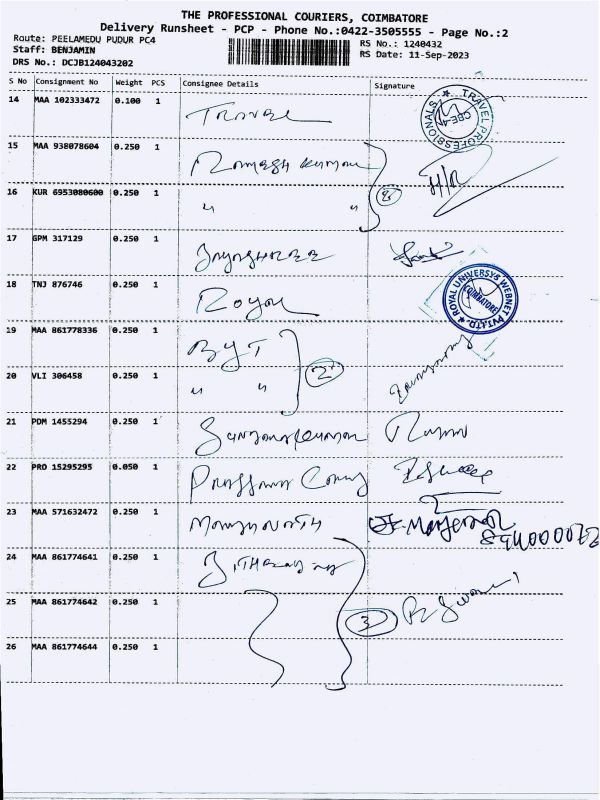 THE PROFESSIONAL COURIERS, COIMBATORE
Delivery Runsheet - PCP - Phone No.:0422-3505555 - Page No.:2
Route: PEELAMEDU PUDUR PC4
Staff: BENJAMIN
DRS No.: DCJB124043202
RS No.: 1240432
RS Date: 11-Sep-2023
S No Consignment No Weight PCS Consignee Details Signature
14 MAA 102333472 0.100 1 Travel
TRAVEL PROFESSIONALS
CBE-4
15 MAA 938078604 0.250 1 Ramesh Kumar
H/R
16 KUR 6953080600 0.250 1 " "
2
17 GPM 317129 0.250 1 Jayashree
18 TNJ 876746 0.250 1 Royal
ROYAL UNIVERSYS WEBNET PVT.LTD.
COIMBATORE
19 MAA 861778336 0.250 1 BYT
20 VLI 306458 0.250 1 " "
2
21 PDM 1455294 0.250 1
22 PRO 15295295 0.050 1
23 MAA 571632472 0.250 1 Manjunath
24 MAA 861774641 0.250 1
25 MAA 861774642 0.250 1
3
26 MAA 861774644 0.250 1